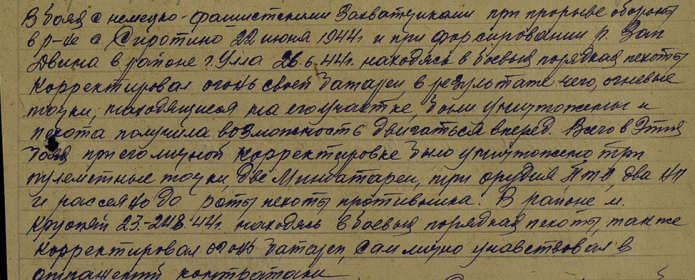 В боях с немецко-фашистскими захватчиками при прорыве обороны
в р-не с Сиротино 22 июня 1944г и при форсировании р. Зап
Двина в районе г. Улла 26.6.44г. находясь в боевых порядках пехоты
корректировал огонь своей батареи в результате чего, огневые
точки, находящиеся на его участке, были уничтожены и
пехота получила возможность двигаться вперед. Всего в этих
боях при его личной корректировке было уничтожено три
пулеметные точки, две минбатареи, три орудия ПТО, два НП
и рассеяно до роты пехоты противника. В районе м.
23-24.8.44г. находясь в боевых порядках пехоты, также
корректировал огонь батареи, сам лично участвовал в
отражении контратаки